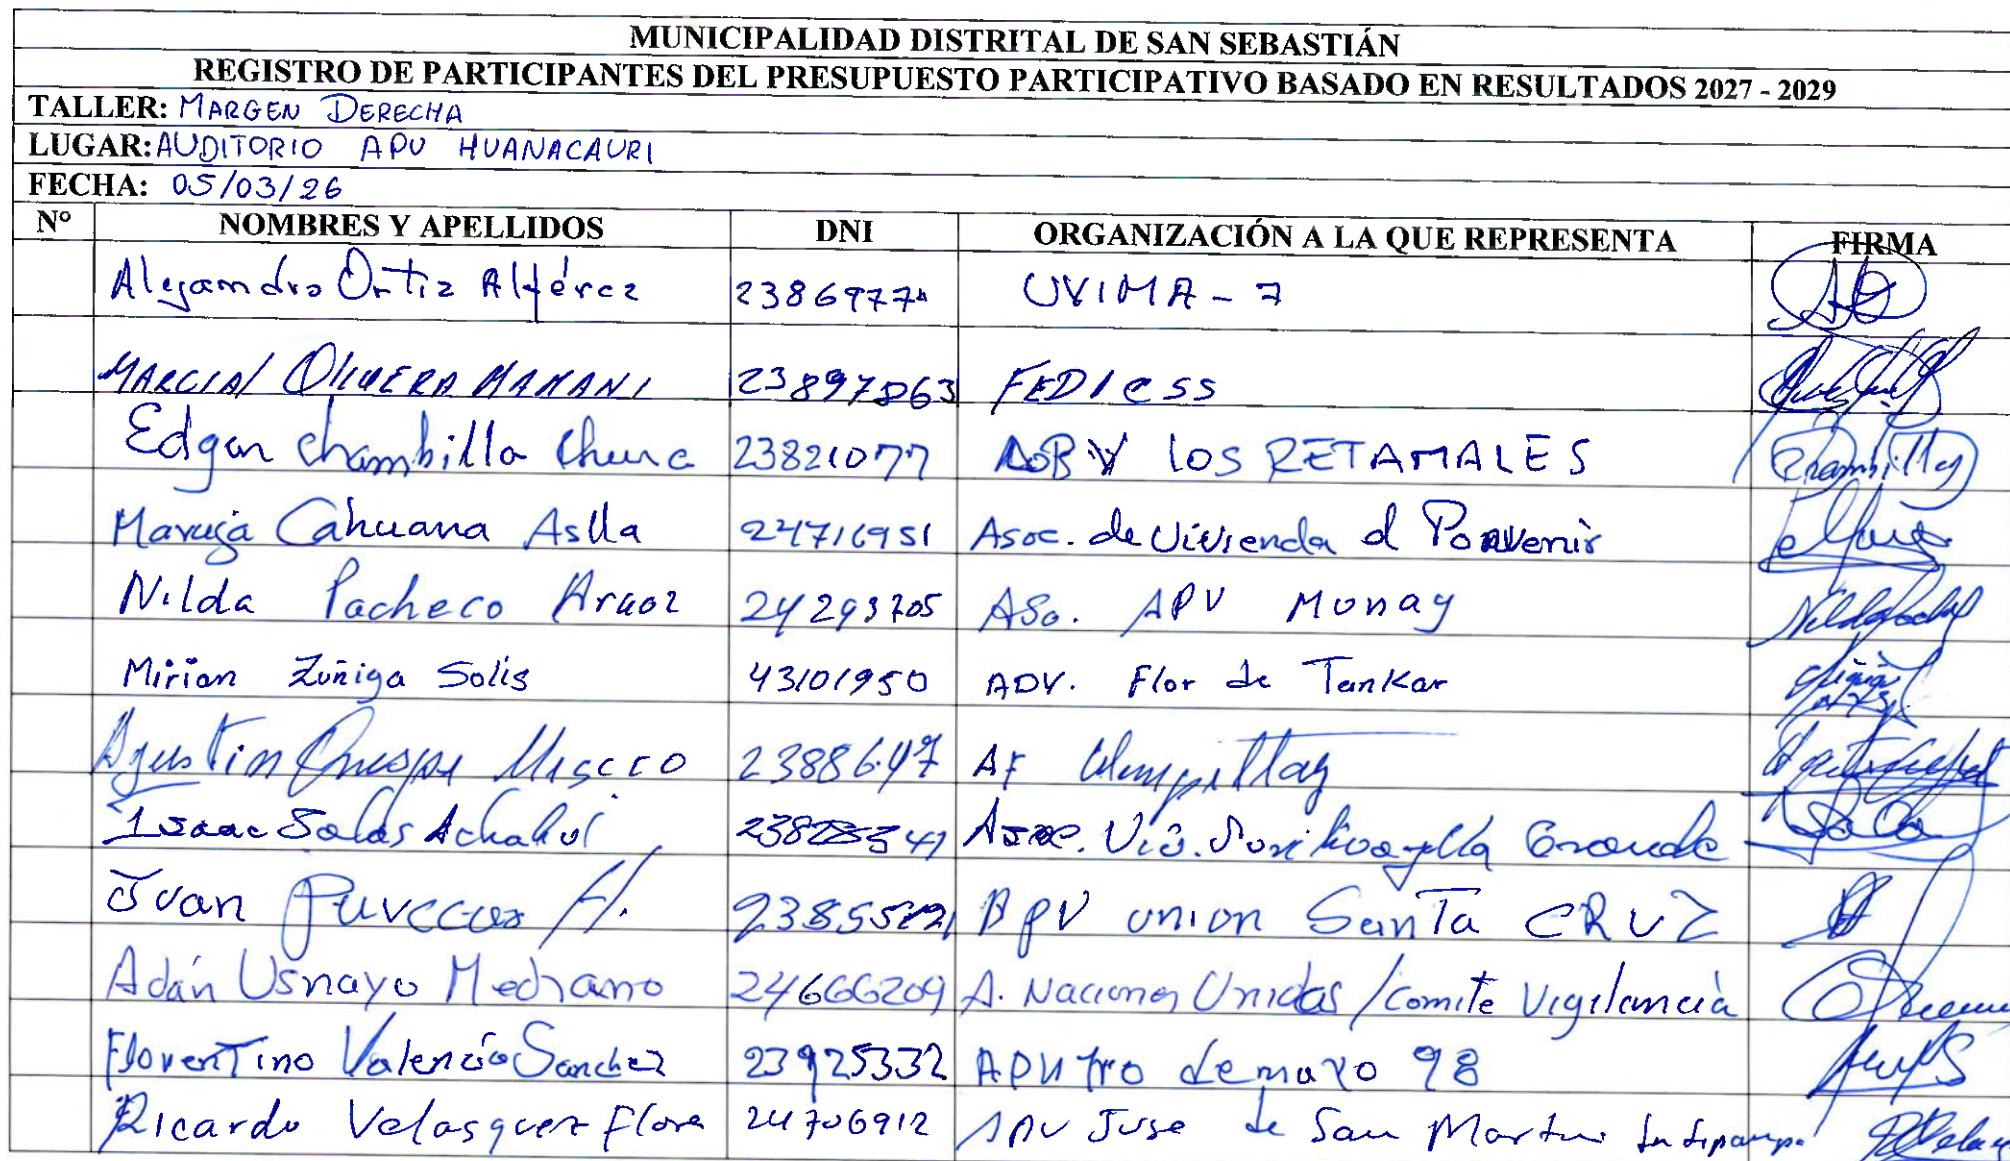 MUNICIPALIDAD DISTRITAL DE SAN SEBASTIÁN
REGISTRO DE PARTICIPANTES DEL PRESUPUESTO PARTICIPATIVO BASADO EN RESULTADOS 2027 - 2029
TALLER: MARGEN DERECHA
LUGAR: AUDITORIO APU HUANACAURI
FECHA: 05/03/26
Nº NOMBRES Y APELLIDOS DNI ORGANIZACIÓN A LA QUE REPRESENTA FIRMA
Alejandro Ortiz Alférez UVIMA - 7
MARCIAL OLIVERA MAMANI 23897863 FEDICSS
Edgar Chambilla Chura 23821077 LOS RETAMALES Chambilla
Maruja Cahuana Aslla 24716951 Asoc. de Vivienda el Porvenir
Nilda Pacheco Araoz 24293705 ASo. APV Munay
Mirian Zuñiga Solis 43101950 ADV. Flor de Tankar
Agustin Quispe
Isaac Salas Grande
Juan H. APV union Santa CRUZ
Adán Usnayo Medrano 24666209 A. Naciones Unidas / Comite Vigilancia
Florentino Valencia Sanchez 23925332 APV 1ro de mayo 98
Ricardo Velasquez Flores 24706912 APV Jose de San Martin